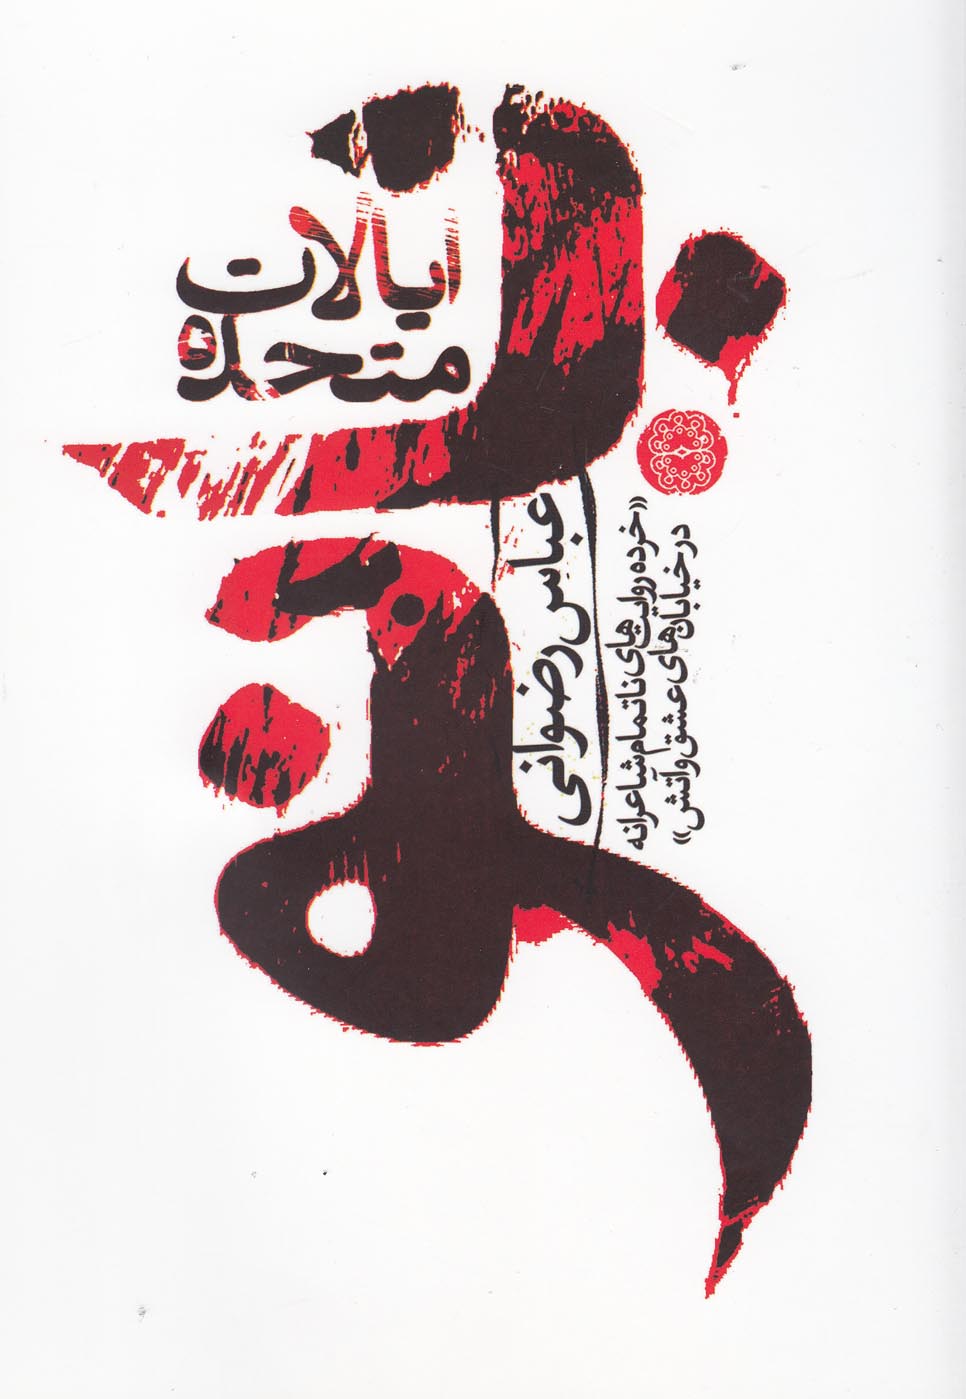 ایالات
متحده
عباس رضوانی
«خرده روایت‌های ناتمام شاعرانه
در خیابان‌های عشق و آتش»